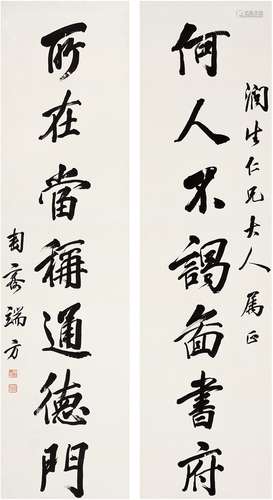 潤生仁兄大人屬正
何人不謁啚書府
所在當稱通德門
匋齋端方